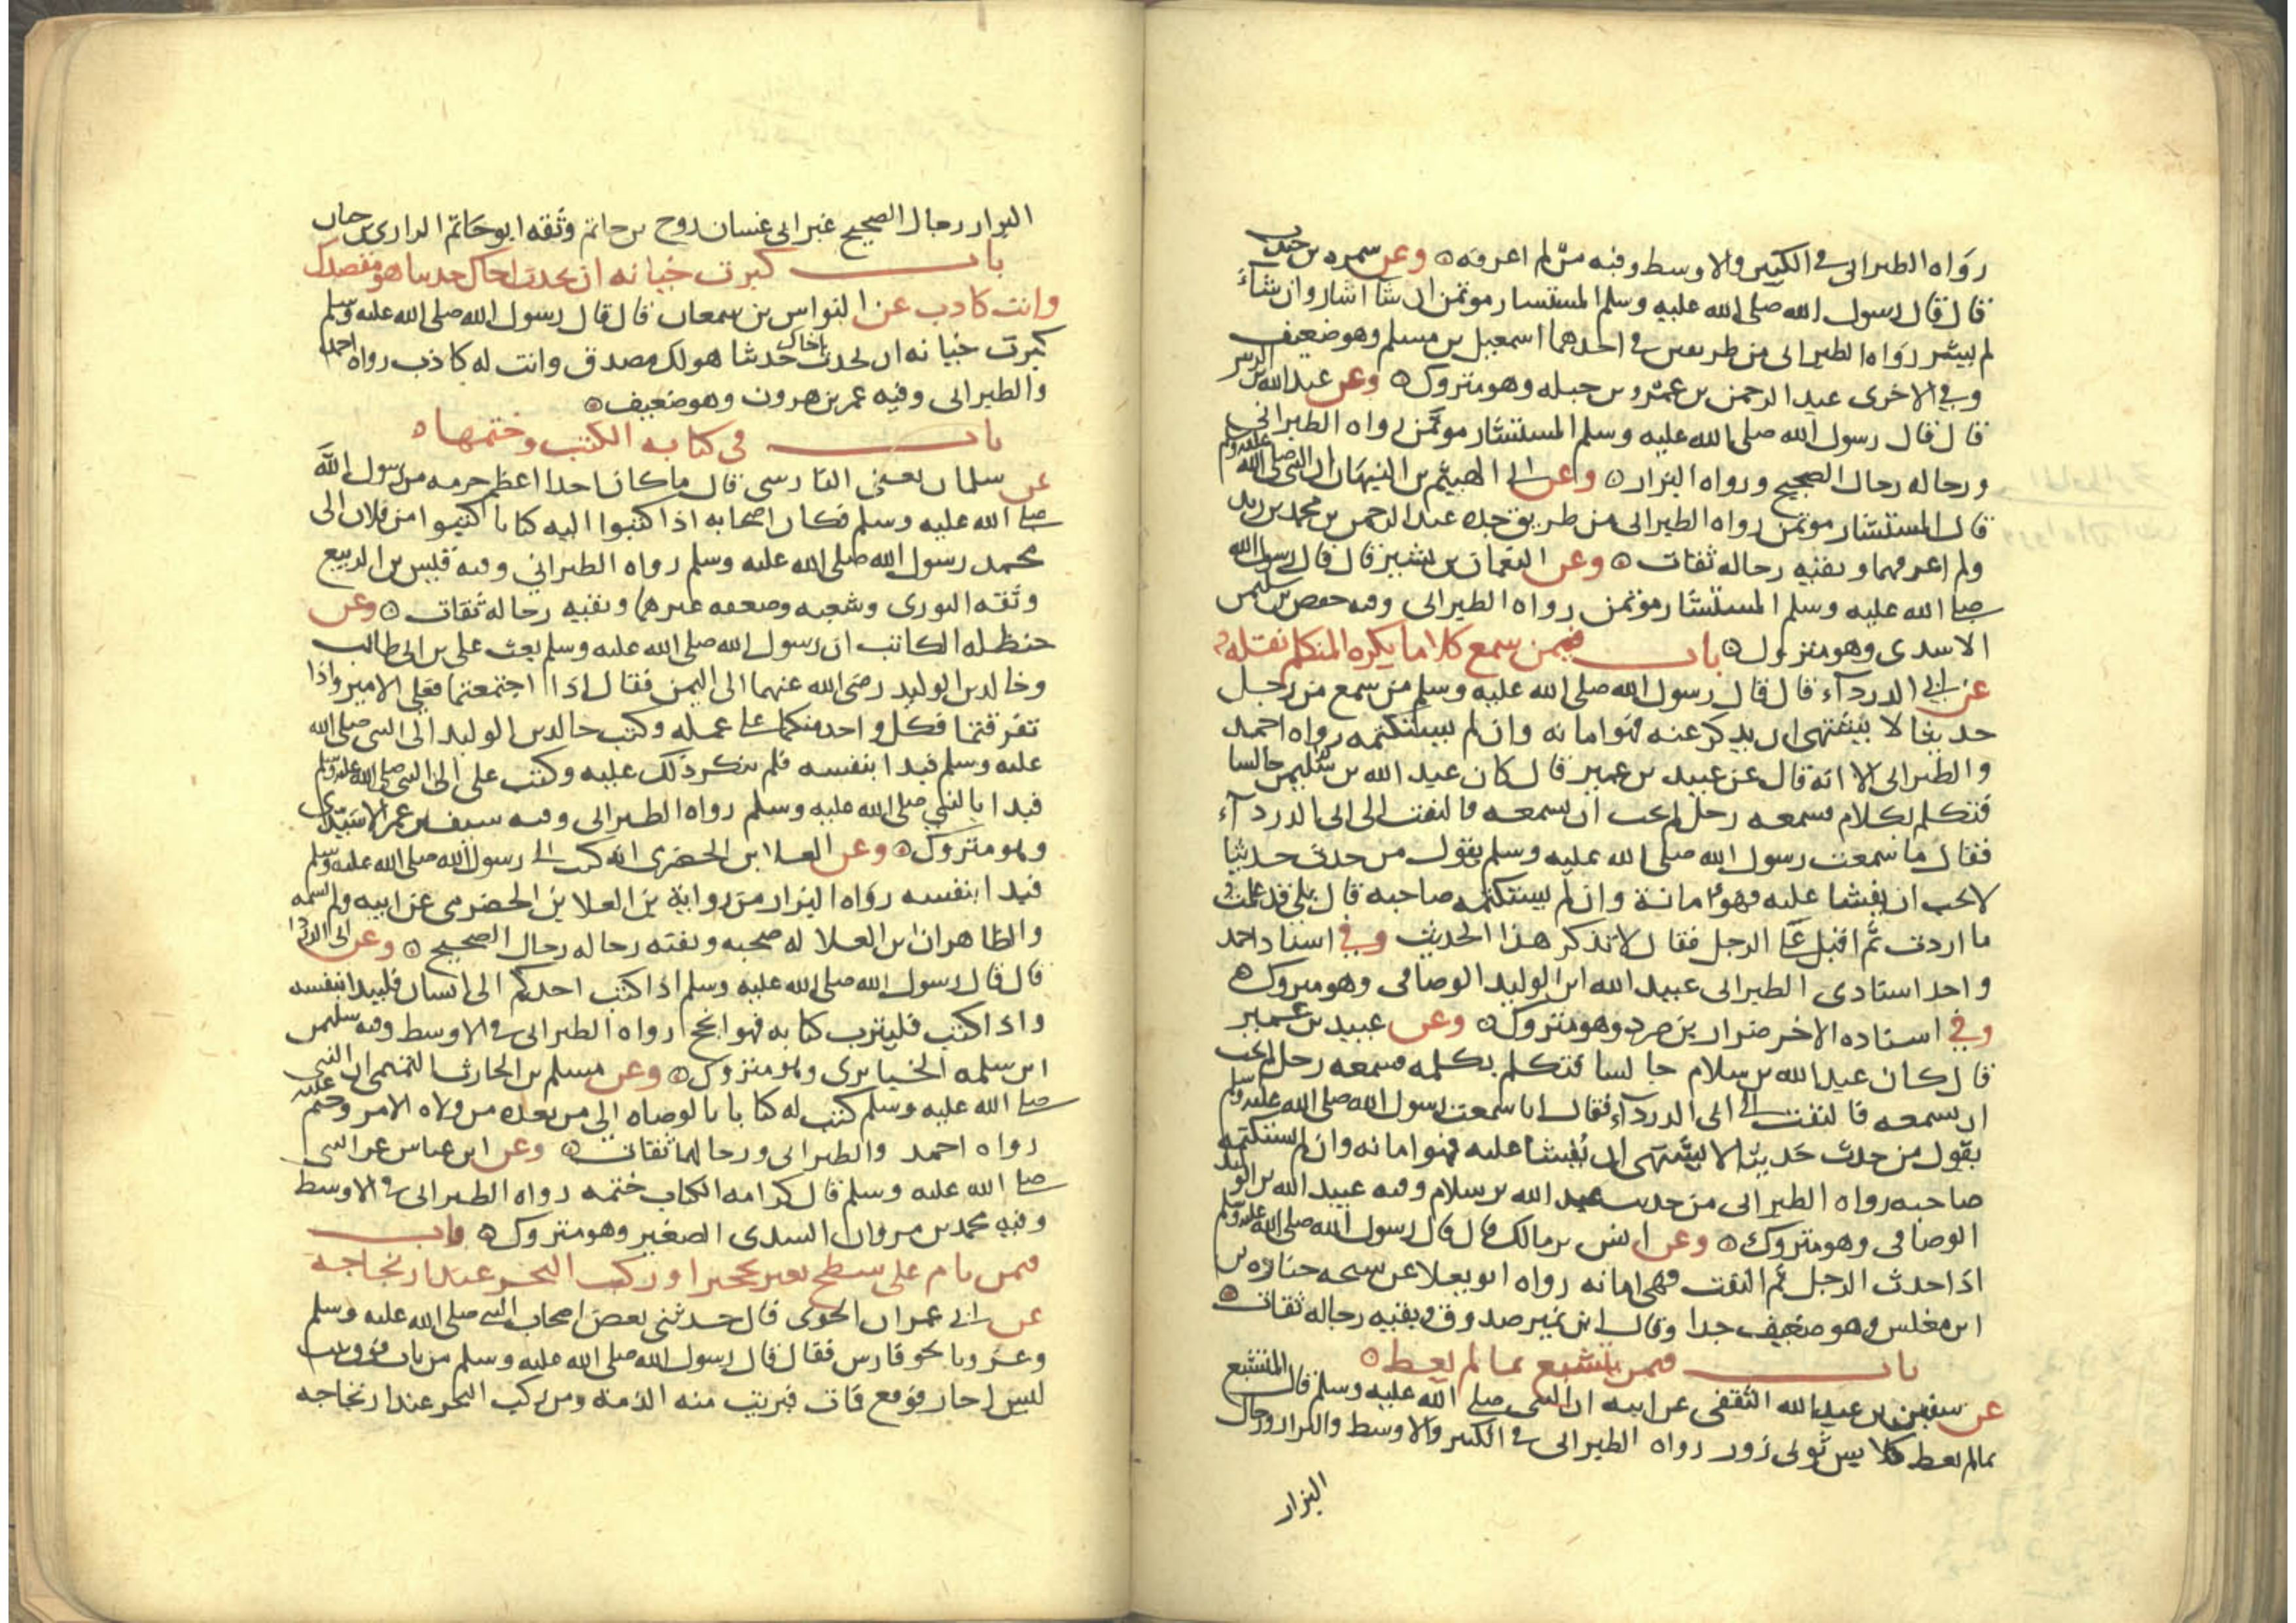 رواه الطبراني في الكبير والاوسط وفيه من لم اعرفه وعن سمره بن جندب
قال قال رسول الله صلى الله عليه وسلم المستشار موتمن ان شا اشار وان شاء
لم يشر رواه الطبراني من طريقين في احدهما اسمعيل بن مسلم وهو ضعيف
وفي الاخرى عبد الرحمن بن عمرو بن جبله وهو متروك وعن عبد الله بن الزبير
قال قال رسول الله صلى الله عليه وسلم المستشار موتمن رواه الطبراني
ورجاله رجال الصحيح ورواه البزار وعن ابي الهيثم بن التيهان ان النبي صلى الله عليه وسلم
قال المستشار موتمن رواه الطبراني من طريق جده عبد الرحمن بن محمد بن زيد
ولم اعرفهما وبقيه رجاله ثقات وعن النعمان بن بشير قال قال رسول الله
صلى الله عليه وسلم المستشار موتمن رواه الطبراني وفيه حفص بن سليمن
الاسدي وهو متروك باب فيمن سمع كلاما يكره المتكلم نقله
عن ابي الدرداء قال قال رسول الله صلى الله عليه وسلم من سمع من رجل
حديثا لا يشتهي ان يذكر عنه فهو امانه وان لم يستكتمه رواه احمد
والطبراني الا انه قال عن عبيد بن عمير قال كان عبد الله بن جالسا
فتكلم بكلام فسمعه رجل لم يحب ان يسمعه فالتفت الى ابي الدرداء
فقال ما سمعت رسول الله صلى الله عليه وسلم يقول من حدث حديثا
لا يحب ان يفشا عليه فهو امانة وان لم يستكتمه صاحبه قال بلى قد علمت
ما اردت ثم اقبل على الرجل فقال لا تذكر هذا الحديث وفي اسناد احمد
واحد اسنادي الطبراني عبيد الله ابن الوليد الوصافي وهو متروك
وفي اسناده الاخر ضرار بن صرد وهو متروك وعن عبيد بن عمير
قال كان عبد الله بن سلام جالسا فتكلم بكلمه فسمعه رجل لم يحب
ان يسمعه فالتفت الى ابي الدرداء فقال اما سمعت رسول الله صلى الله عليه وسلم
يقول من حدث حديثا لا يشتهي ان يفشا عليه فهو امانه وان لم يستكتمه
صاحبه رواه الطبراني من حديث عبد الله بن سلام وفيه عبيد الله بن الوليد
الوصافي وهو متروك وعن انس بن مالك قال قال رسول الله صلى الله عليه وسلم
اذا حدث الرجل ثم التفت فهي امانه رواه ابو يعلا عن شيخه جباره بن
ابن مغلس وهو ضعيف جدا وقال ابن نمير صدوق وبقيه رجاله ثقات
باب فيمن يتشبع بما لم يعط
عن سفين بن عبد الله الثقفي عن ابيه ان النبي صلى الله عليه وسلم قال المتشبع
بما لم يعط كلابس ثوبي زور رواه الطبراني في الكبير والاوسط والبزار ورجال
البزار
البزار رجال الصحيح غير ابي غسان روح بن حاتم وثقه ابو حاتم الرازي بن حبان
باب كبرت خيانه ان تحدث اخاك حديثا هو مصدق
وانت كاذب عن النواس بن سمعان قال قال رسول الله صلى الله عليه وسلم
كبرت خيانه ان تحدث اخاك حديثا هو لك مصدق وانت له كاذب رواه احمد
والطبراني وفيه عمر بن هرون وهو ضعيف
باب في كتابه الكتب وختمها
عن سلمان يعني الفارسي قال ما كان احد اعظم حرمه من رسول الله
صلى الله عليه وسلم فكان اصحابه اذا كتبوا اليه كتابا كتبوا من فلان الى
محمد رسول الله صلى الله عليه وسلم رواه الطبراني وفيه قيس بن الربيع
وثقه الثوري وشعبه وضعفه غيرهما وبقيه رجاله ثقات وعن
حنظله الكاتب ان رسول الله صلى الله عليه وسلم بعث علي بن ابي طالب
وخالد بن الوليد رضى الله عنهما الى اليمن فقال اذا اجتمعتما فعلي الامير واذا
تفرقتما فكل واحد منكما على عمله وكتب خالد بن الوليد الى النبي صلى الله
عليه وسلم فبدا بنفسه فلم ينكر ذلك عليه وكتب علي الى النبي صلى الله عليه وسلم
فبدا بالنبي صلى الله عليه وسلم رواه الطبراني وفيه سيف بن عمر الاسيدي
وهو متروك وعن العلا ابن الحضرمي انه كتب الى رسول الله صلى الله عليه وسلم
فبدا بنفسه رواه البزار من رواية بن العلا بن الحضرمي عن ابيه ولم يسمه
والظاهر ان ابن العلا له صحبه وبقيه رجاله رجال الصحيح وعن ابي الدرداء
قال قال رسول الله صلى الله عليه وسلم اذا كتب احدكم الى انسان فليبدا بنفسه
واذا كتب فليترب كتابه فهو انجح رواه الطبراني في الاوسط وفيه سليمن
ابن سلمه الخبايري وهو متروك وعن مسلم بن الحارث التميمي ان النبي
صلى الله عليه وسلم كتب له كتابا بالوصاه الى من بعده من ولاه الامر وختم عليه
رواه احمد والطبراني ورجالهما ثقات وعن ابن عباس عن النبي
صلى الله عليه وسلم قال كرامه الكتاب ختمه رواه الطبراني في الاوسط
وفيه محمد بن مروان السدي الصغير وهو متروك باب
فيمن نام على سطح بغير تحجير او ركب البحر عند ارتجاجه
عن ابي عمران الجوني قال حدثني بعض اصحاب النبي صلى الله عليه وسلم
وغزونا نحو فارس فقال قال رسول الله صلى الله عليه وسلم من بات فوق بيت
ليس اجار فوقع فمات فبريت منه الذمة ومن ركب البحر عند ارتجاجه